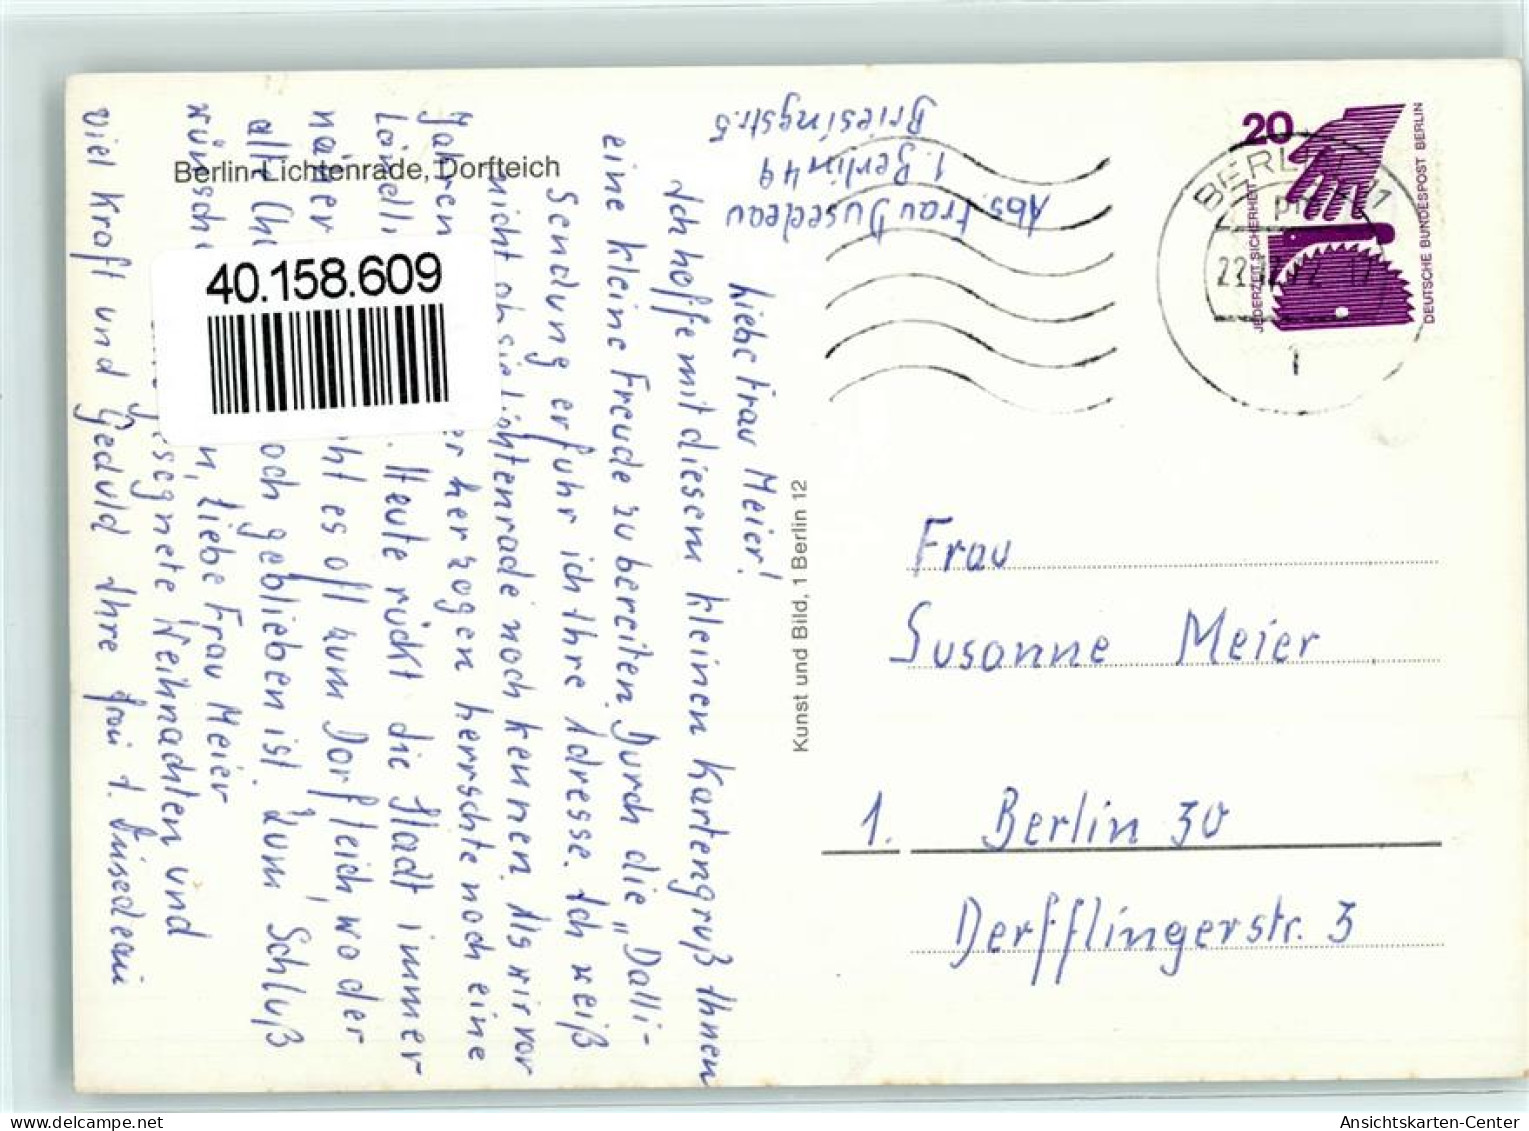 Berlin-Lichtenrade, Dorfteich
Abs. Frau Dusedeau
1. Berlin 49
Briesingstr. 5
Liebe Frau Meier!
Ich hoffe mit diesem kleinen Kartengruß Ihnen
eine kleine Freude zu bereiten. Durch die „Dalli-
Sendung erfuhr ich Ihre Adresse. Ich weiß
nicht ob sie Lichtenrade noch kennen. Als wir vor
Jahren er her zogen herrschte noch eine
Ländli . Heute rückt die Stadt immer
näher ht es oft zum Dorfteich, wo der
alte Ch och geblieben ist. Zum Schluß
wünsche n, liebe Frau Meier
gesegnete Weihnachten und
viel Kraft und Geduld Ihre Frau
40.158.609
Kunst und Bild, 1 Berlin 12
20
JEDERZEIT SICHERHEIT
DEUTSCHE BUNDESPOST BERLIN
BERLIN 11
1
Frau
Susanne Meier
1. Berlin 30
Derfflingerstr. 3
delcampe.net
Ansichtskarten-Center